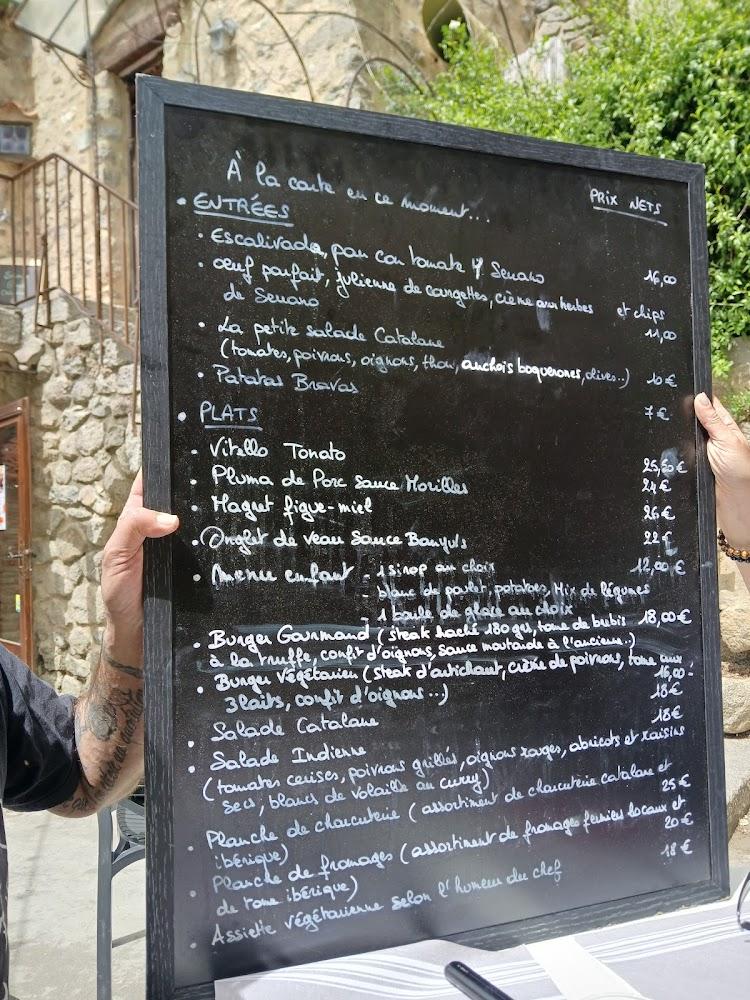 À la carte en ce moment...
PRIX NETS
• ENTRÉES
• Escalivada, pan con tomate Serrano 16,00
• œuf parfait, julienne de courgettes, crème aux herbes et chips
de Serrano 11,00
• La petite salade Catalane
(tomates, poivrons, oignons, thon, anchois boquerones, olives..) 10€
• Patatas Bravas 7€
• PLATS
• Vitello Tonato 25,50€
• Pluma de Porc sauce Morilles 24€
• Magret figue-miel 26€
• Onglet de veau Sauce Banyuls 22€
• Menu enfant - 1 sirop au choix 12,00€
- blanc de poulet, patatas, Mix de légumes
- 1 boule de glace au choix
• Burger Gourmand (steak haché 180grs, tome de brebis 18,00€
à la truffe, confit d'oignons, sauce moutarde à l'ancienne..)
• Burger Végétarien (steak d'artichaut, crème de poivrons, tome aux 16,00-
3 laits, confit d'oignons..) 18€
• Salade Catalane 18€
• Salade Indienne
(tomates cerises, poivrons grillés, oignons rouges, abricots et raisins
secs, blancs de volaille au curry)
• Planche de charcuterie (assortiment de charcuterie catalane et 25€
ibérique)
• Planche de fromages (assortiment de fromages fermiers locaux et 20€
de tome ibérique) 18€
• Assiette végétarienne selon l'humeur du chef